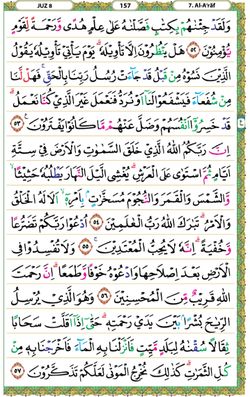 JUZ 8
157
7. Al-A'rāf
وَلَقَدْ جِئْنٰهُمْ بِكِتٰبٍ فَصَّلْنٰهُ عَلٰى عِلْمٍ هُدًى وَّرَحْمَةً لِّقَوْمٍ
يُّؤْمِنُوْنَ ﴿٥٢﴾ هَلْ يَنْظُرُوْنَ اِلَّا تَأْوِيْلَهٗ ۗ يَوْمَ يَأْتِيْ تَأْوِيْلُهٗ يَقُوْلُ
الَّذِيْنَ نَسُوْهُ مِنْ قَبْلُ قَدْ جَاۤءَتْ رُسُلُ رَبِّنَا بِالْحَقِّ ۚ فَهَلْ لَّنَا
مِنْ شُفَعَاۤءَ فَيَشْفَعُوْا لَنَآ اَوْ نُرَدُّ فَنَعْمَلَ غَيْرَ الَّذِيْ كُنَّا نَعْمَلُ ۗ
قَدْ خَسِرُوْٓا اَنْفُسَهُمْ وَضَلَّ عَنْهُمْ مَّا كَانُوْا يَفْتَرُوْنَ ﴿٥٣﴾
اِنَّ رَبَّكُمُ اللّٰهُ الَّذِيْ خَلَقَ السَّمٰوٰتِ وَالْاَرْضَ فِيْ سِتَّةِ
اَيَّامٍ ثُمَّ اسْتَوٰى عَلَى الْعَرْشِ يُغْشِى الَّيْلَ النَّهَارَ يَطْلُبُهٗ حَثِيْثًا ۙ
وَّالشَّمْسَ وَالْقَمَرَ وَالنُّجُوْمَ مُسَخَّرٰتٍۢ بِاَمْرِهٖ ۗ اَلَا لَهُ الْخَلْقُ
وَالْاَمْرُ ۗ تَبٰرَكَ اللّٰهُ رَبُّ الْعٰلَمِيْنَ ﴿٥٤﴾ اُدْعُوْا رَبَّكُمْ تَضَرُّعًا
وَّخُفْيَةً ۗ اِنَّهٗ لَا يُحِبُّ الْمُعْتَدِيْنَ ﴿٥٥﴾ وَلَا تُفْسِدُوْا فِى
الْاَرْضِ بَعْدَ اِصْلَاحِهَا وَادْعُوْهُ خَوْفًا وَّطَمَعًا ۗ اِنَّ رَحْمَتَ
اللّٰهِ قَرِيْبٌ مِّنَ الْمُحْسِنِيْنَ ﴿٥٦﴾ وَهُوَ الَّذِيْ يُرْسِلُ
الرِّيٰحَ بُشْرًاۢ بَيْنَ يَدَيْ رَحْمَتِهٖ ۗ حَتّٰىٓ اِذَآ اَقَلَّتْ سَحَابًا
ثِقَالًا سُقْنٰهُ لِبَلَدٍ مَّيِّتٍ فَاَنْزَلْنَا بِهِ الْمَاۤءَ فَاَخْرَجْنَا بِهٖ مِنْ
كُلِّ الثَّمَرٰتِ ۗ كَذٰلِكَ نُخْرِجُ الْمَوْتٰى لَعَلَّكُمْ تَذَكَّرُوْنَ ﴿٥٧﴾